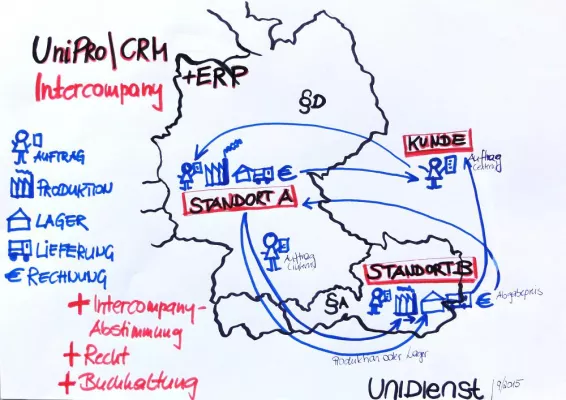 UniPRO/CRM
+ERP
Intercompany
§D
AUFTRAG
PRODUKTION
LAGER
LIEFERUNG
€ RECHNUNG
+ Intercompany-
Abstimmung
+ Recht
+ Buchhaltung
KUNDE
Auftrag
(extern)
€
STANDORT A
Auftrag
(intern)
STANDORT B
§A
€
Abgabepreis
Produktion oder Lager
UNIDIENST
9/2015